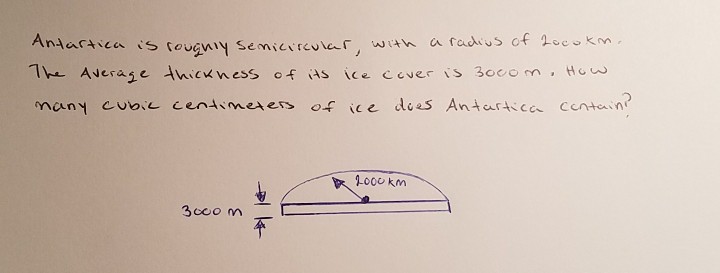 Antartica is roughly semicircular, with a radius of 2000km.
The Average thickness of its ice cover is 3000m. How
many cubic centimeters of ice does Antartica contain?
2000km
3000 m